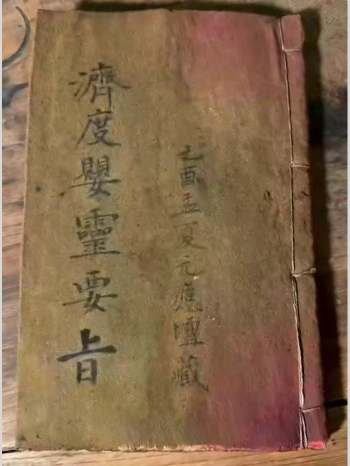 乙酉孟夏元應壇藏
濟度嬰靈要旨